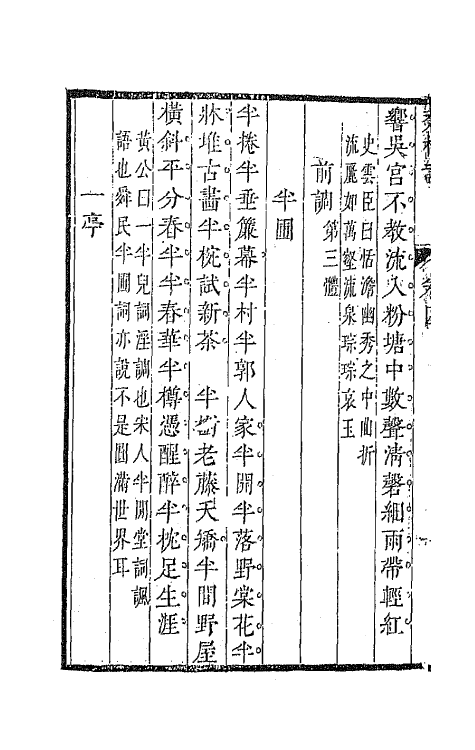 響吳宮不教流入粉塘中數聲清磬細雨帶輕紅
史雲臣曰恬澹幽秀之中曲折
流麗如萬壑流泉琮琮哀玉
前調第三體
半圃
半捲半垂簾幕半村半郭人家半開半落野棠花半
牀堆古畵半椀試新茶　半畝老藤天矯半間野屋
橫斜平分春半半春華半樽憑醒醉半枕足生涯
黃公曰一半兒詞淫調也宋人半閒堂詞諷
語也舜民半圃詞亦說不是圓滿世界耳
一亭